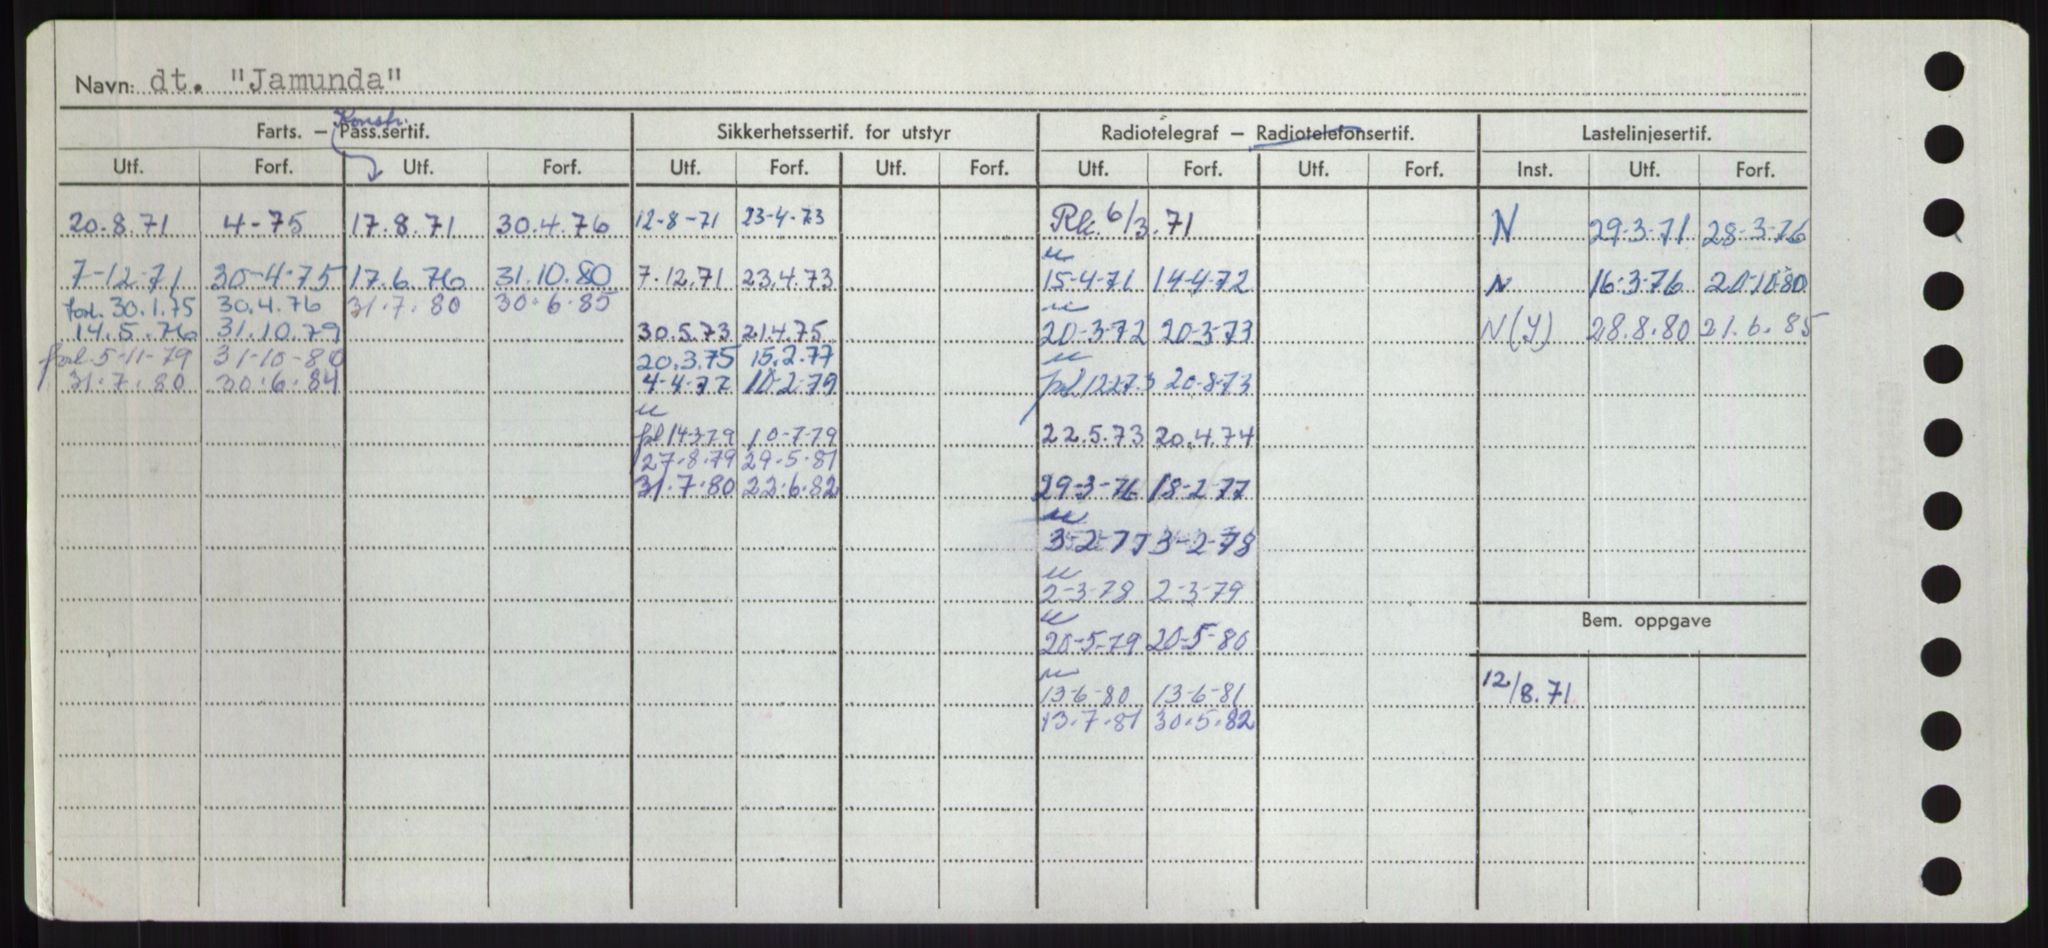 Navn: dt. "Jamunda"
Konstr.
Farts. — Pass.sertif. Sikkerhetssertif. for utstyr Radiotelegraf — Radiotelefonsertif. Lastelinjesertif.
Utf. Forf. Utf. Forf. Utf. Forf. Utf. Forf. Utf. Forf. Utf. Forf. Inst. Utf. Forf.
20.8.71 4-75 17.8.71 30.4.76 12-8-71 23-4-73 Rk. 6/3.71 N 29-3-71 28-3-76
7-12-71 30-4-75 17.6.76 31.10.80 7.12.71 23.4.73 15-4-71 14-4-72 N 16-3-76 20-10-80
forl. 30.1.75 30.4.76 31.7.80 30.6.85
14.5.76 31.10.79 30.5.73 21.4.75 20-3-72 20-3-73 N(Y) 28.8.80 21.6.85
forl 5-11-79 31-10-80 20.3.75 15.2.77
31.7.80 30.6.84 4-4-77 10-2-79 forl 12273 20-8-73
fol 14379 10-7-79 22.5.73 20.4.74
27.8.79 29.5.81
31.7.80 22.6.82 29-3-76 18-2-77
3-2-77 3-2-78
2-3-78 2-3-79
20-5-79 20-5-80
Bem. oppgave
13-6-80 13-6-81 12/8.71
13.7.81 30.5.82